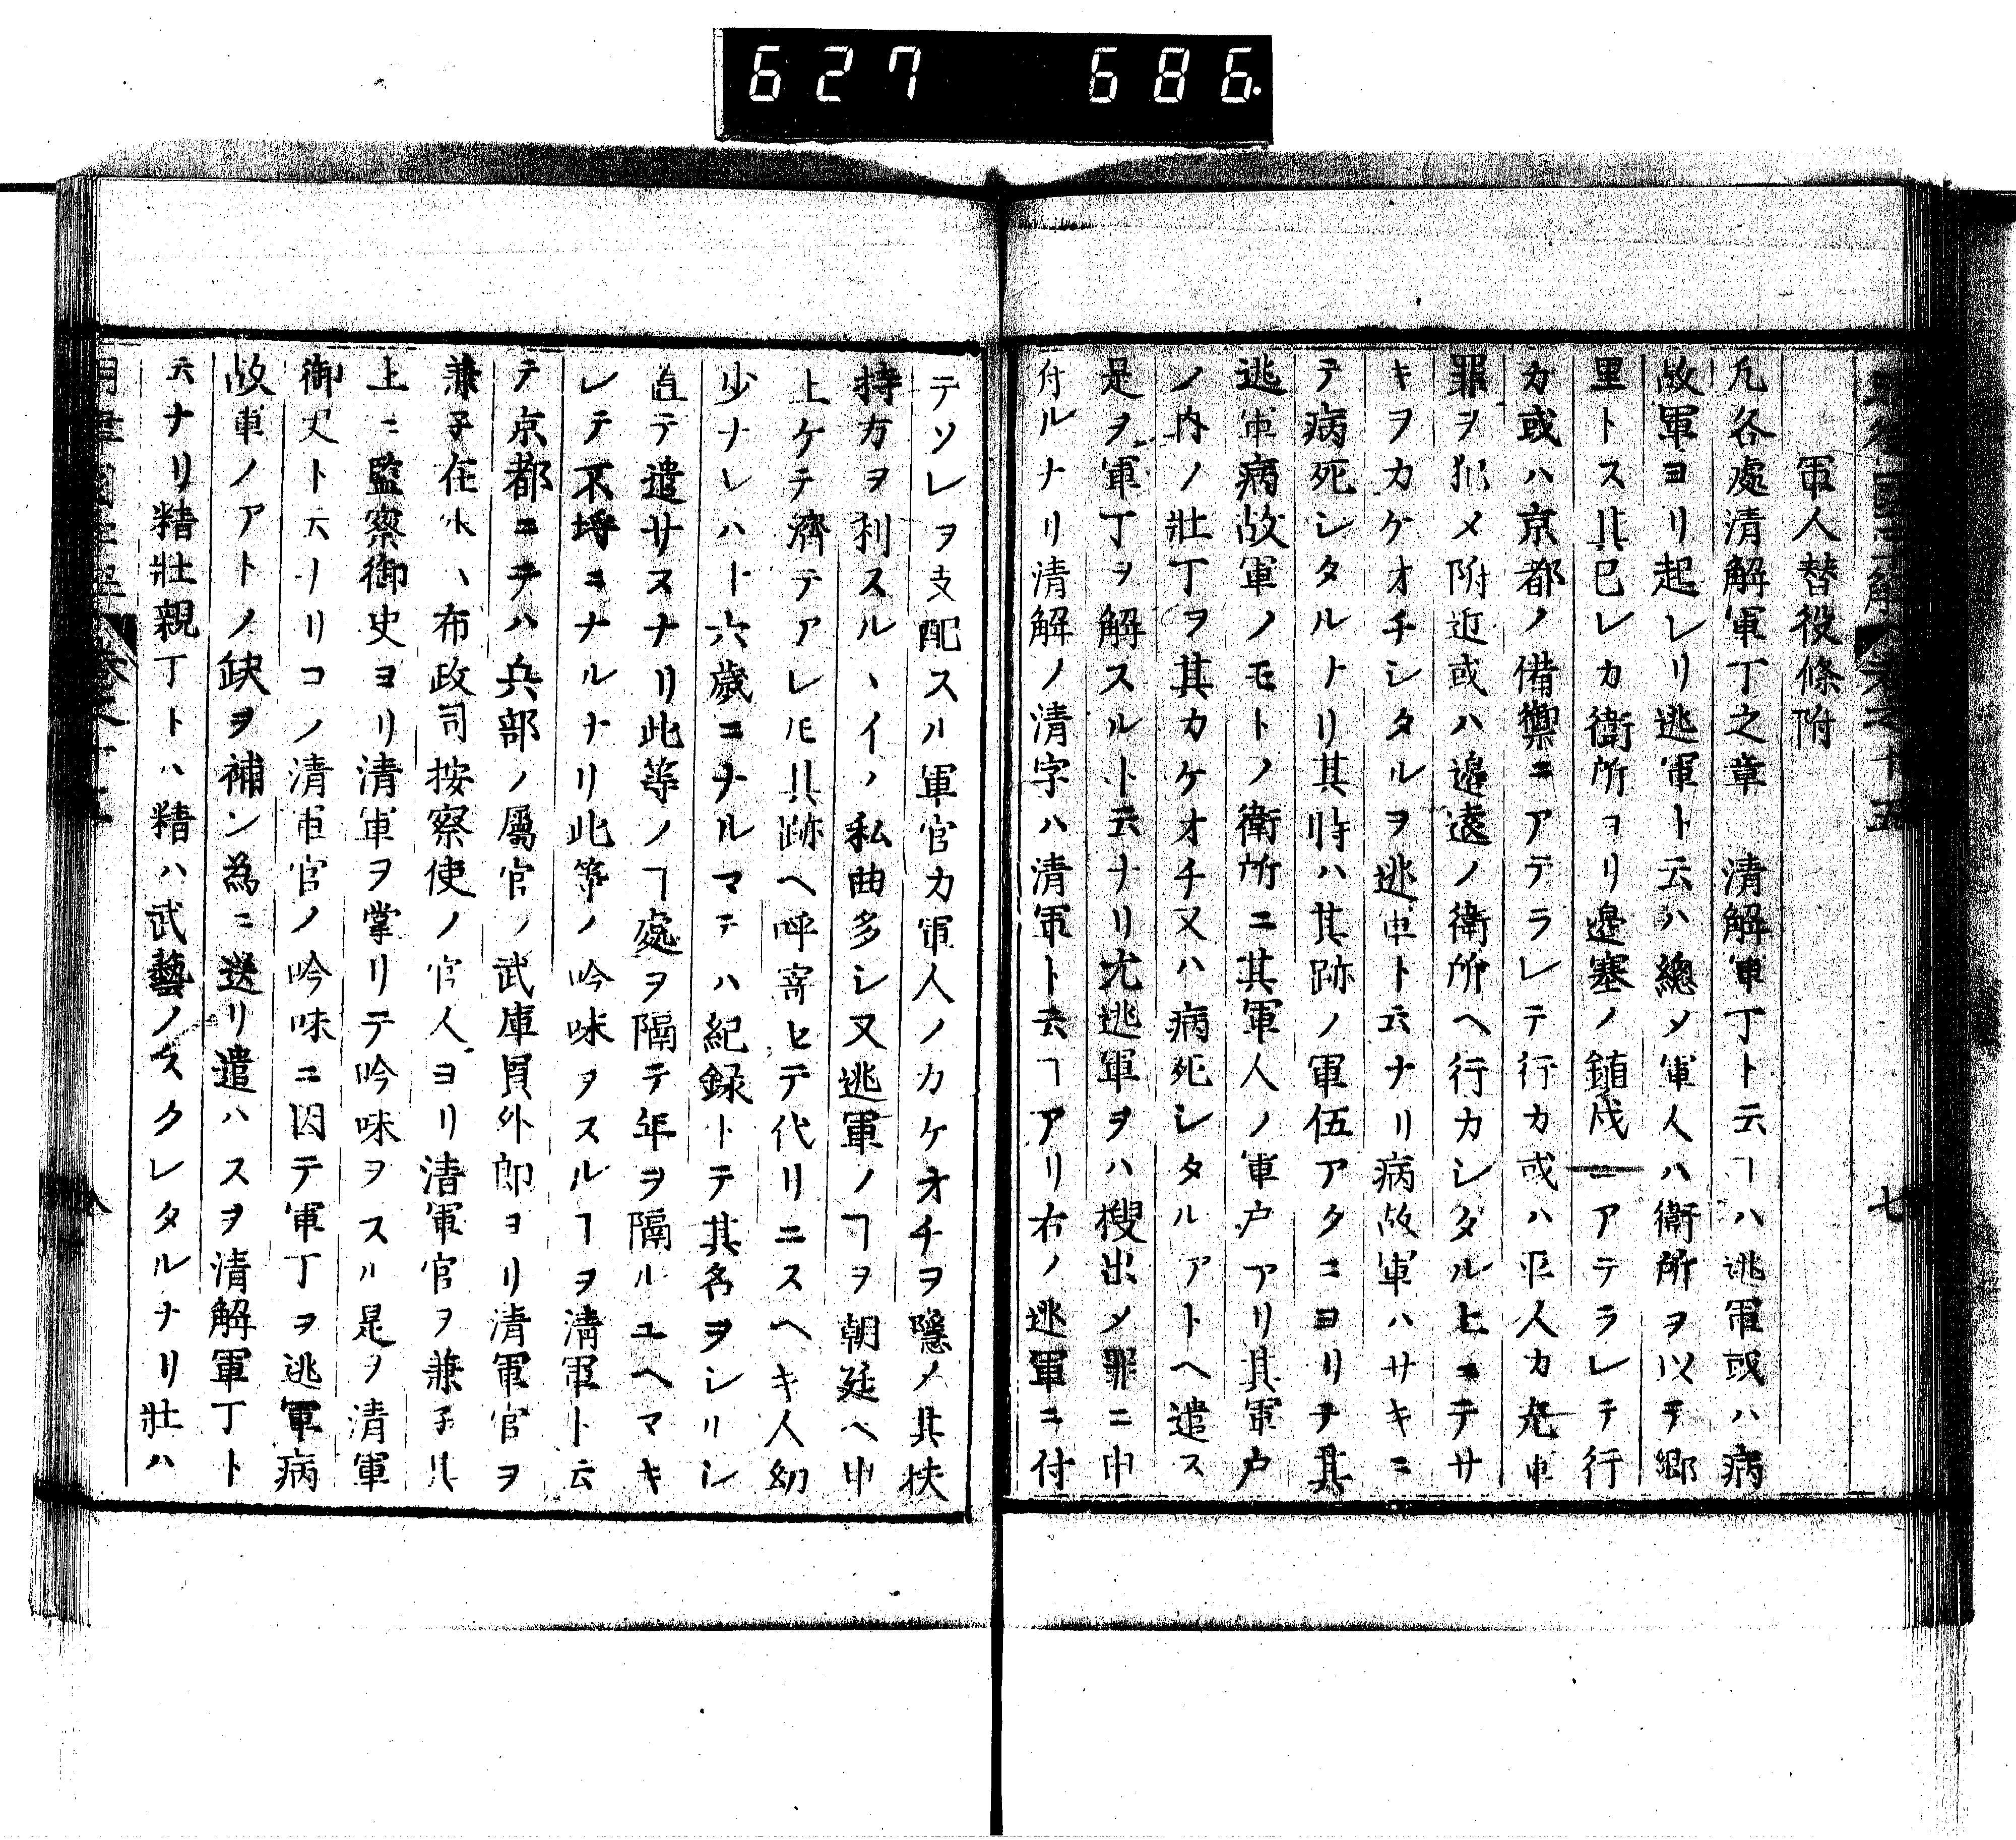 627 686.
軍人替役條附
凢各處清解軍丁之章　清解軍丁ト云ヿハ逃軍或ハ病
故軍ヨリ起レリ逃軍ト云ハ總メ軍人ハ衛所ヲ以テ郷
里トス其已レカ衛所ヨリ邊塞ノ鎮戍ニアテラレテ行
カ或ハ京都ノ備禦ニアテラレテ行カ或ハ平人カ軍
罪ヲ犯メ附近或ハ邉遠ノ衛所ヘ行カシタルヒニテサ
キヲカケオチシタルヲ逃軍ト云ナリ病故軍ハサキニ
テ病死シタルナリ其時ハ其跡ノ軍伍アタニヨリテ其
逃軍病故軍ノモトノ衛所ニ其軍人ノ軍户アリ其軍户
ノ内ノ壯丁ヲ其カケオチ又ハ病死シタルアトヘ遣ス
是ヲ軍丁ヲ解スルト云ナリ尤逃軍ヲハ搜出メ罪ニ申
付ルナリ清解ノ清字ハ清軍ト云ヿアリ右ノ逃軍ニ付
テソレヲ支配スル軍官カ軍人ノカケオチヲ隱メ其扶
持方ヲ利スルヽイノ私曲多シ又逃軍ノヿヲ朝廷ヘ申
上ケテ濟テアレ𪜈其跡ヘ呼寄ヒテ代リニスヘキ人幼
少ナレハ十六歳ニナルマテハ紀録トテ其名ヲシリシ
直テ遣サスナリ此等ノヿ處ヲ隔テ年ヲ隔ルユヘマキ
レテ不埒ニナルナリ此等ノ吟味ヲスルヿヲ清軍ト云
テ京都ニテハ兵部ノ屬官ノ武庫員外郎ヨリ清軍官ヲ
兼子在外ハ布政司按察使ノ官人ヨリ清軍官ヲ兼子其
上ニ監察御史ヨリ清軍ヲ掌リテ吟味ヲスル是ヲ清軍
御史ト云ナリコノ清軍官ノ吟味ニ因テ軍丁ヲ逃軍病
故軍ノアトノ缺ヲ補ン為ニ送リ遣ハスヲ清解軍丁ト
云ナリ精壯親丁トハ精ハ武藝ノスクレタルナリ壯ハ